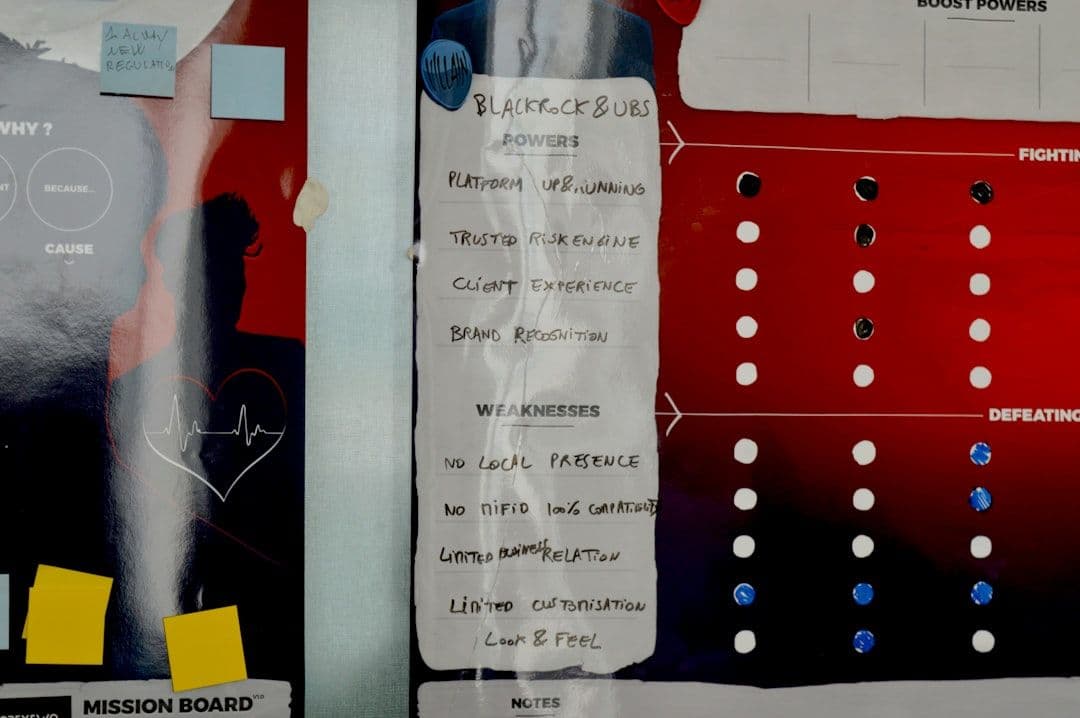 1 ALWAY
NEW
REGULATION
WHY ?
NT
BECAUSE...
CAUSE
MISSION BOARD
VILLAIN
BLACKROCK & UBS
POWERS
PLATFORM UP & RUNNING
TRUSTED RISK ENGINE
CLIENT EXPERIENCE
BRAND RECOGNITION
WEAKNESSES
NO LOCAL PRESENCE
NO MIFID 100%
LIMITED BUSINESS RELATION
LIMITED CUSTOMISATION
LOOK & FEEL
NOTES
BOOST POWERS
FIGHTIN
DEFEATING